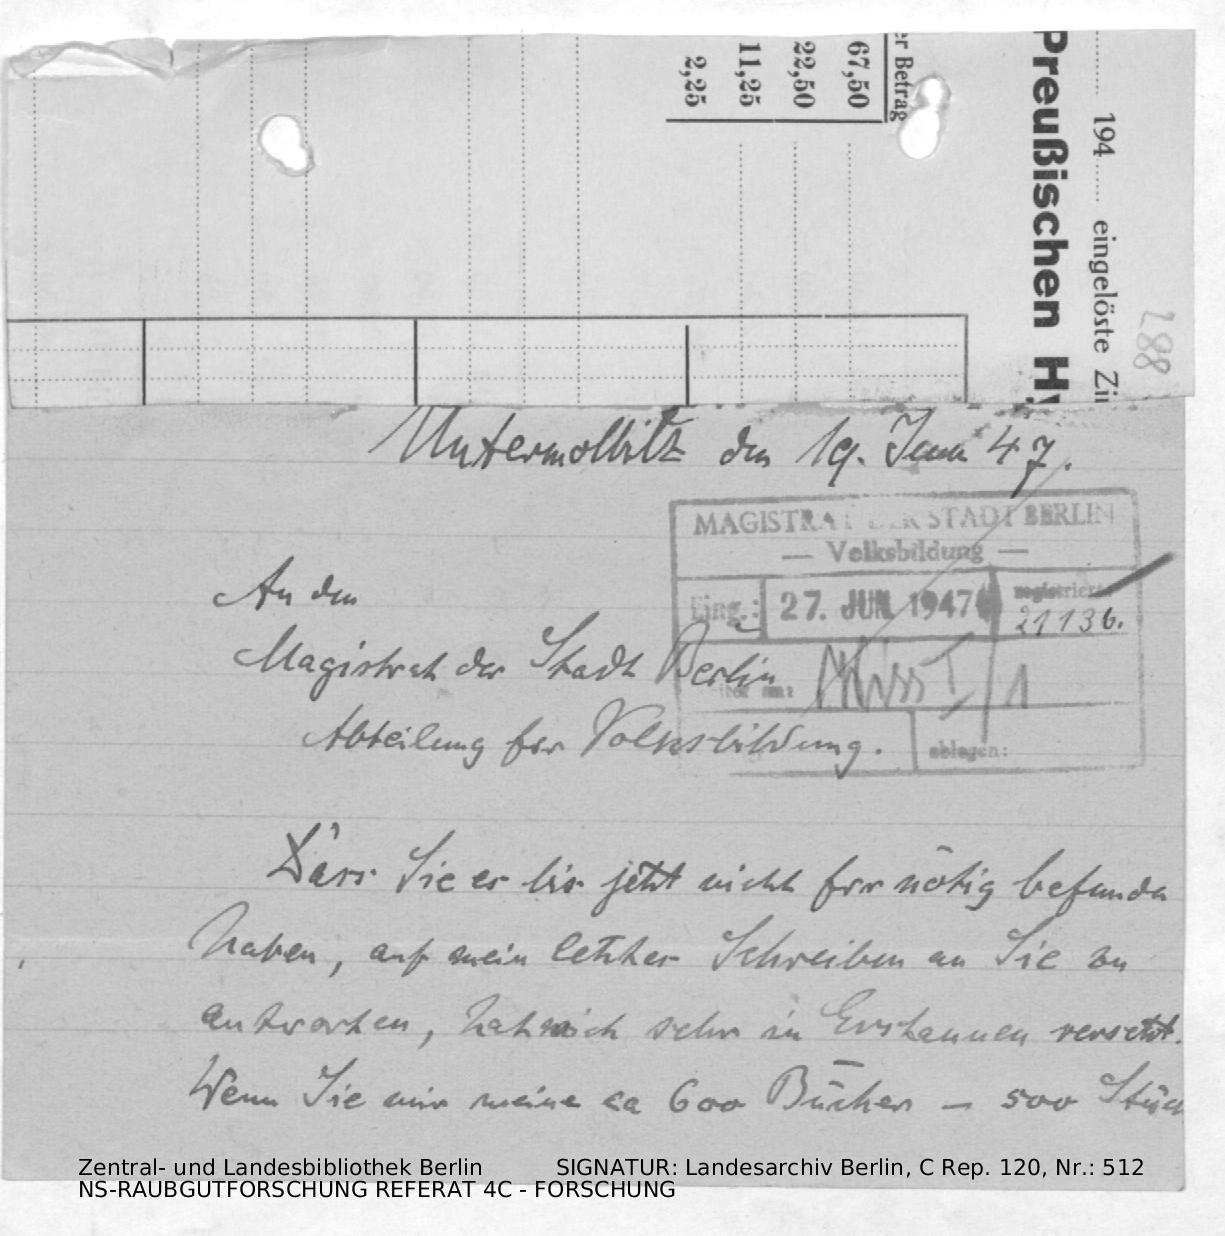 er Betrag
67,50
22,50
11,25
2,25
194 eingelöste Zi
Preußischen H
288
den 19. Juni 47.
MAGISTRAT DER STADT BERLIN
— Volksbildung —
Eing.: 27. JUN 1947 registriert:
21136.
ablegen:
An den
Magistrat der Stadt Berlin
Abteilung für Volksbildung.
Dass Sie es bis jetzt nicht für nötig befunden
haben, auf mein letztes Schreiben an Sie zu
antworten, hat mich sehr in Erstaunen versetzt.
Wenn Sie mir meine ca 600 Bücher – 500 Stück
Zentral- und Landesbibliothek Berlin SIGNATUR: Landesarchiv Berlin, C Rep. 120, Nr.: 512
NS-RAUBGUTFORSCHUNG REFERAT 4C - FORSCHUNG